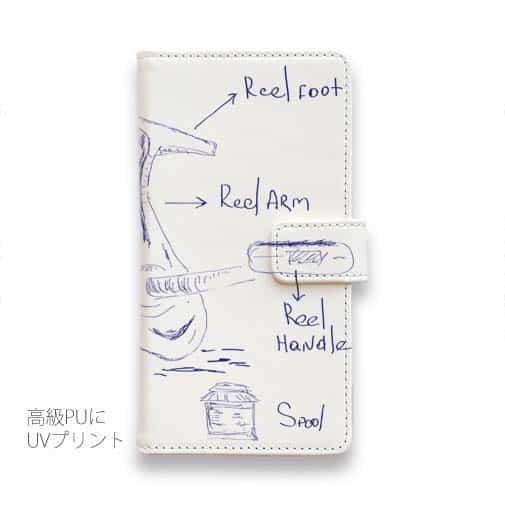 Reel FOOT
Reel ARM
Reel
HANdle
Spool
高級PUに
UVプリント